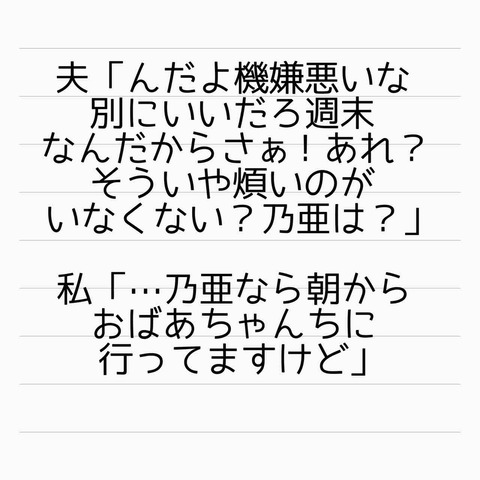 夫「んだよ機嫌悪いな
別にいいだろ週末
なんだからさぁ！あれ？
そういや煩いのが
いなくない？乃亜は？」
私「…乃亜なら朝から
おばあちゃんちに
行ってますけど」